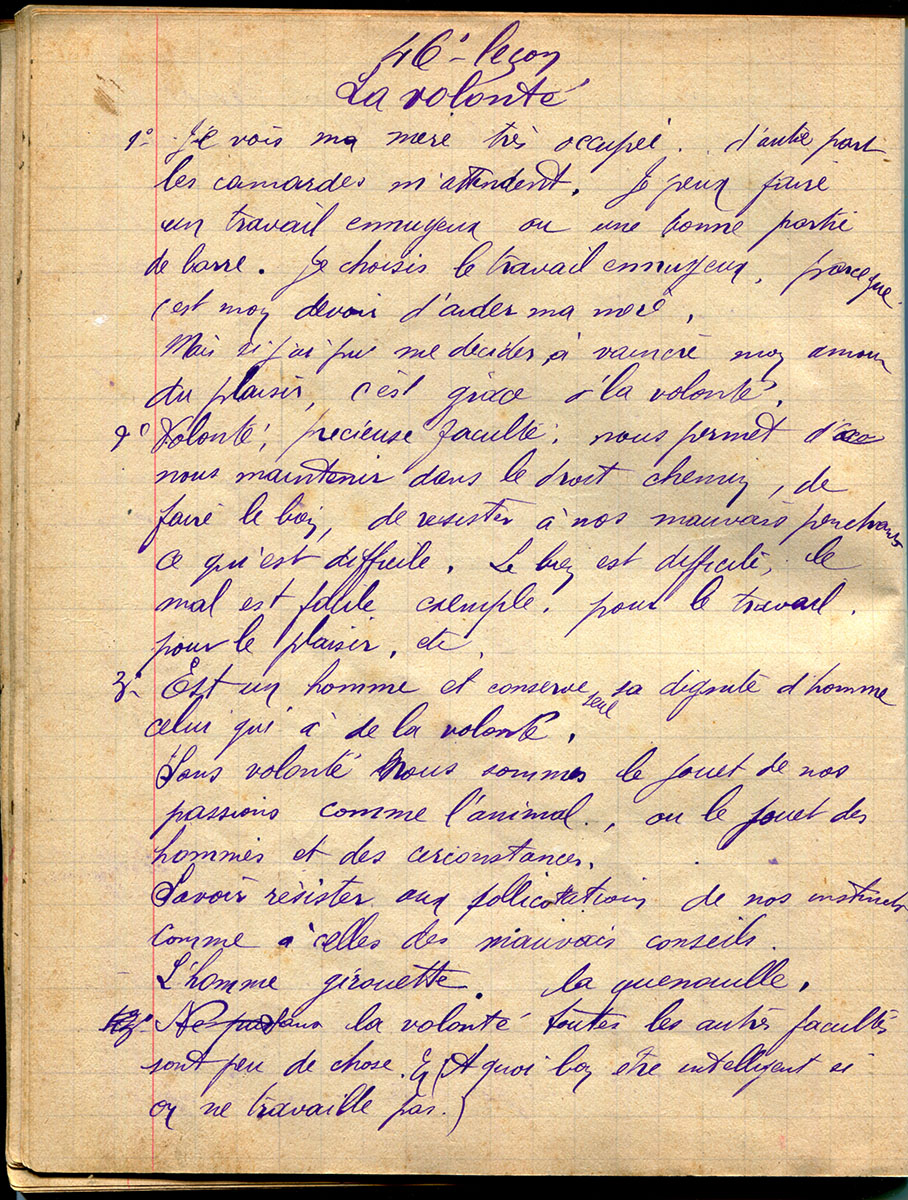 46e leçon
La volonté
1º Je vois ma mère très occupée. d'autre part
les camardes m'attendent. Je peux faire
un travail ennuyeux ou une bonne partie
de barre. Je choisis le travail ennuyeux, parceque
c'est mon devoir d'aider ma mère.
Mais si j'ai pu me décider à vaincre mon amour
du plaisir, c'est grâce à la volonté.
2º Volonté, précieuse faculté, nous permet d
nous maintenir dans le droit chemin, de
faire le bien, de resister à nos mauvais penchants
ce qu'est difficile. Le bien est difficile, le
mal est facile exemple. pour le travail.
pour le plaisir, etc.
3º Est un homme et conserve seul sa dignité d'homme
celui qui à de la volonté.
Sans volonté Nous sommes le jouet de nos
passions comme l'animal, ou le jouet des
hommes et des circonstances.
Savoir résister aux sollicitations de nos instincts
comme à celles des mauvais conseils.
L'homme girouette. la quenouille.
la volonté toutes les autres facultés
sont peu de chose. (A quoi bon être intelligent si
on ne travaille pas.)